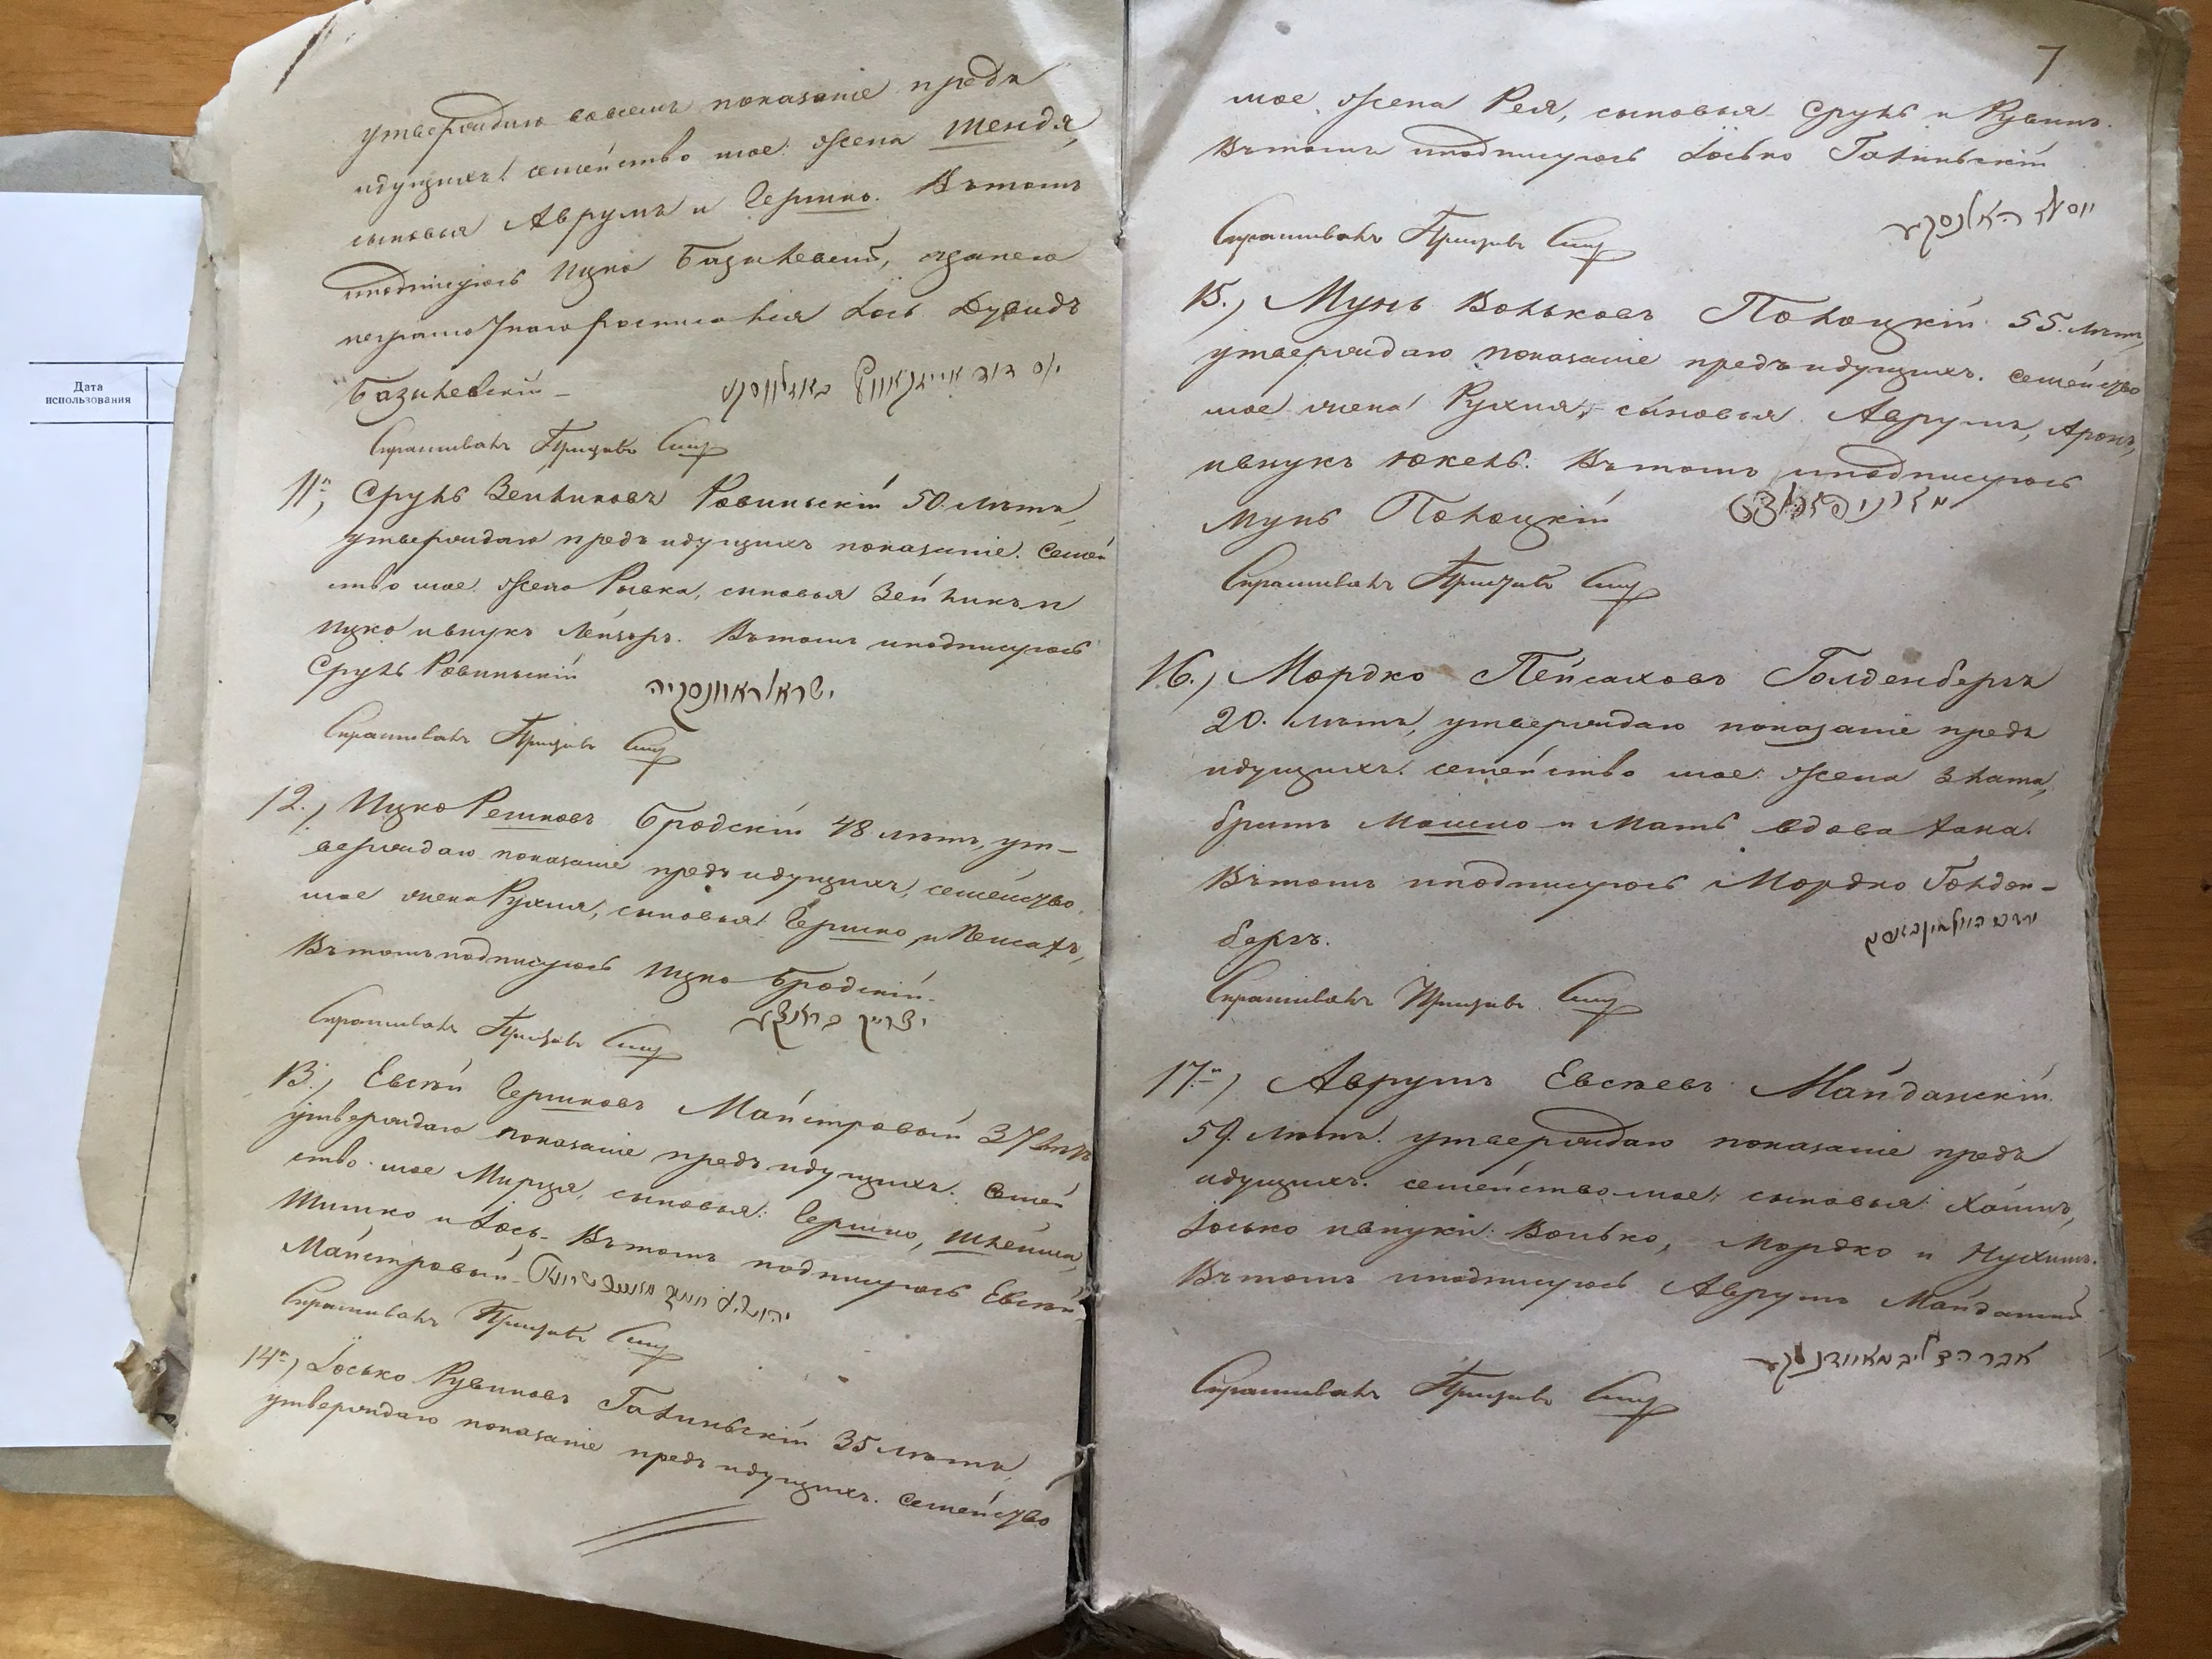 утверждаю вовсемъ показаніе предъ
идущихъ! семейство мое: жена Шендля,
сыновья Аврумъ и Гершко. Въ томъ
иподписуюсь Ицко Базилевскій, озанего
неграмотнаго росписался Іось Дувидъ
Базилевскій
Спрашивалъ Приставъ
11, Сруль Зейликовъ Ровинскій 50. лѣтъ,
утверждаю предъ идущихъ показаніе. Семей
ство мое: жена Рывка, сыновья Зейликъ и
Ицко ивнукъ Лейзоръ. Въ томъ иподписуюсь
Сруль Ровинскій ישראל ראווינסקיה
Спрашивалъ Приставъ
12., Ицко Решковъ Бродскій 48 лѣтъ, ут-
верждаю показаніе предъ идущихъ, семейство
мое жена Рухля, сыновья! Гершко и Пейсахъ,
Въ томъ подписуюсь Ицко Бродскій.
Спрашивалъ Приставъ
13., Евсѣй Гершковъ Майстровый 37 лѣтъ
утверждаю показаніе предъ идущихъ. Семей
ство мое Мирця, сыновья: Гершко, Шлейма,
Шимко и Іось. Въ томъ подписуюсь Евсѣй
Майстровый
Спрашивалъ Приставъ
14, Іосько Рувиновъ Галинскій 35 лѣтъ,
утверждаю показаніе предъ идущихъ. Семейство
7
мое жена Рея, сыновья Сруль и Рувинъ.
Въ томъ иподписуюсь Іосько Галинскій
Спрашивалъ Приставъ
15., Мунь Вольковъ Полоцкій 55. лѣтъ,
утверждаю показаніе предъ идущихъ. семейство
мое жена! Рухля, сыновья Аврумъ, Аронъ,
ивнукъ Юкель. Въ томъ иподписуюсь
Мунь Полоцкій
Спрашивалъ Приставъ
16., Мордко Пейсаховъ Голденбергъ
20. лѣтъ, утверждаю показаніе предъ
идущихъ. семейство мое: жена Злата,
братъ Мошко и мать вдова Хана.
Въ томъ иподписуюсь Мордко Голден-
бергъ.
Спрашивалъ Приставъ
17, Аврумъ Евсѣевъ Майданскій
59. лѣтъ. утверждаю показаніе предъ
идущихъ. семейство мое: сыновья: Хаимъ,
Іосько ивнуки: Волько, Мордко и Нухимъ.
Въ томъ иподписуюсь Аврумъ Майданскій
Спрашивалъ Приставъ
Дата
использования